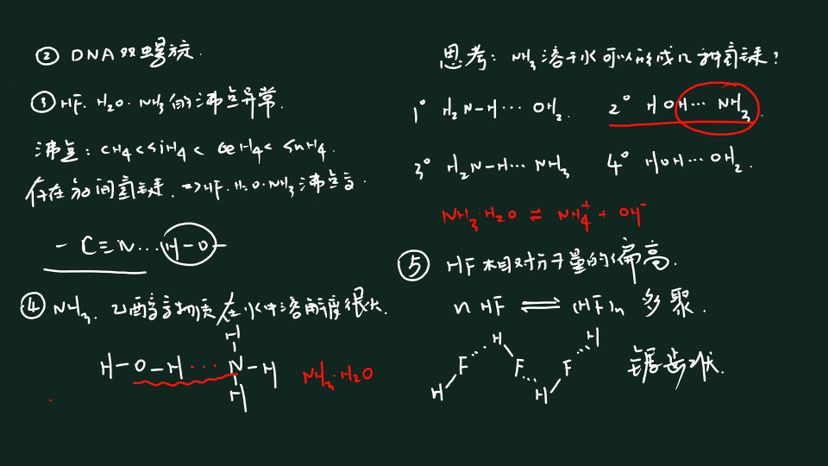 ② DNA双螺旋.
③ HF. H₂O. NH₃的沸点异常.
沸点: CH₄<SiH₄< GeH₄< SnH₄.
存在分间氢键. => HF. H₂O. NH₃沸点高.
- C≡N...H-O-
④ NH₃. 乙醇等物质在水中溶解度很大.
H
H-O-H...N-H
H
NH₃·H₂O
思考: NH₃溶于水可以形成几种氢键?
1° H₂N-H... OH₂.
2° HOH... NH₃.
3° H₂N-H... NH₃
4° HOH... OH₂.
NH₃·H₂O ⇌ NH₄⁺ + OH⁻
⑤ HF相对分子量的偏高.
n HF ⇌ (HF)n 多聚.
H F H F H F H
锯齿状.